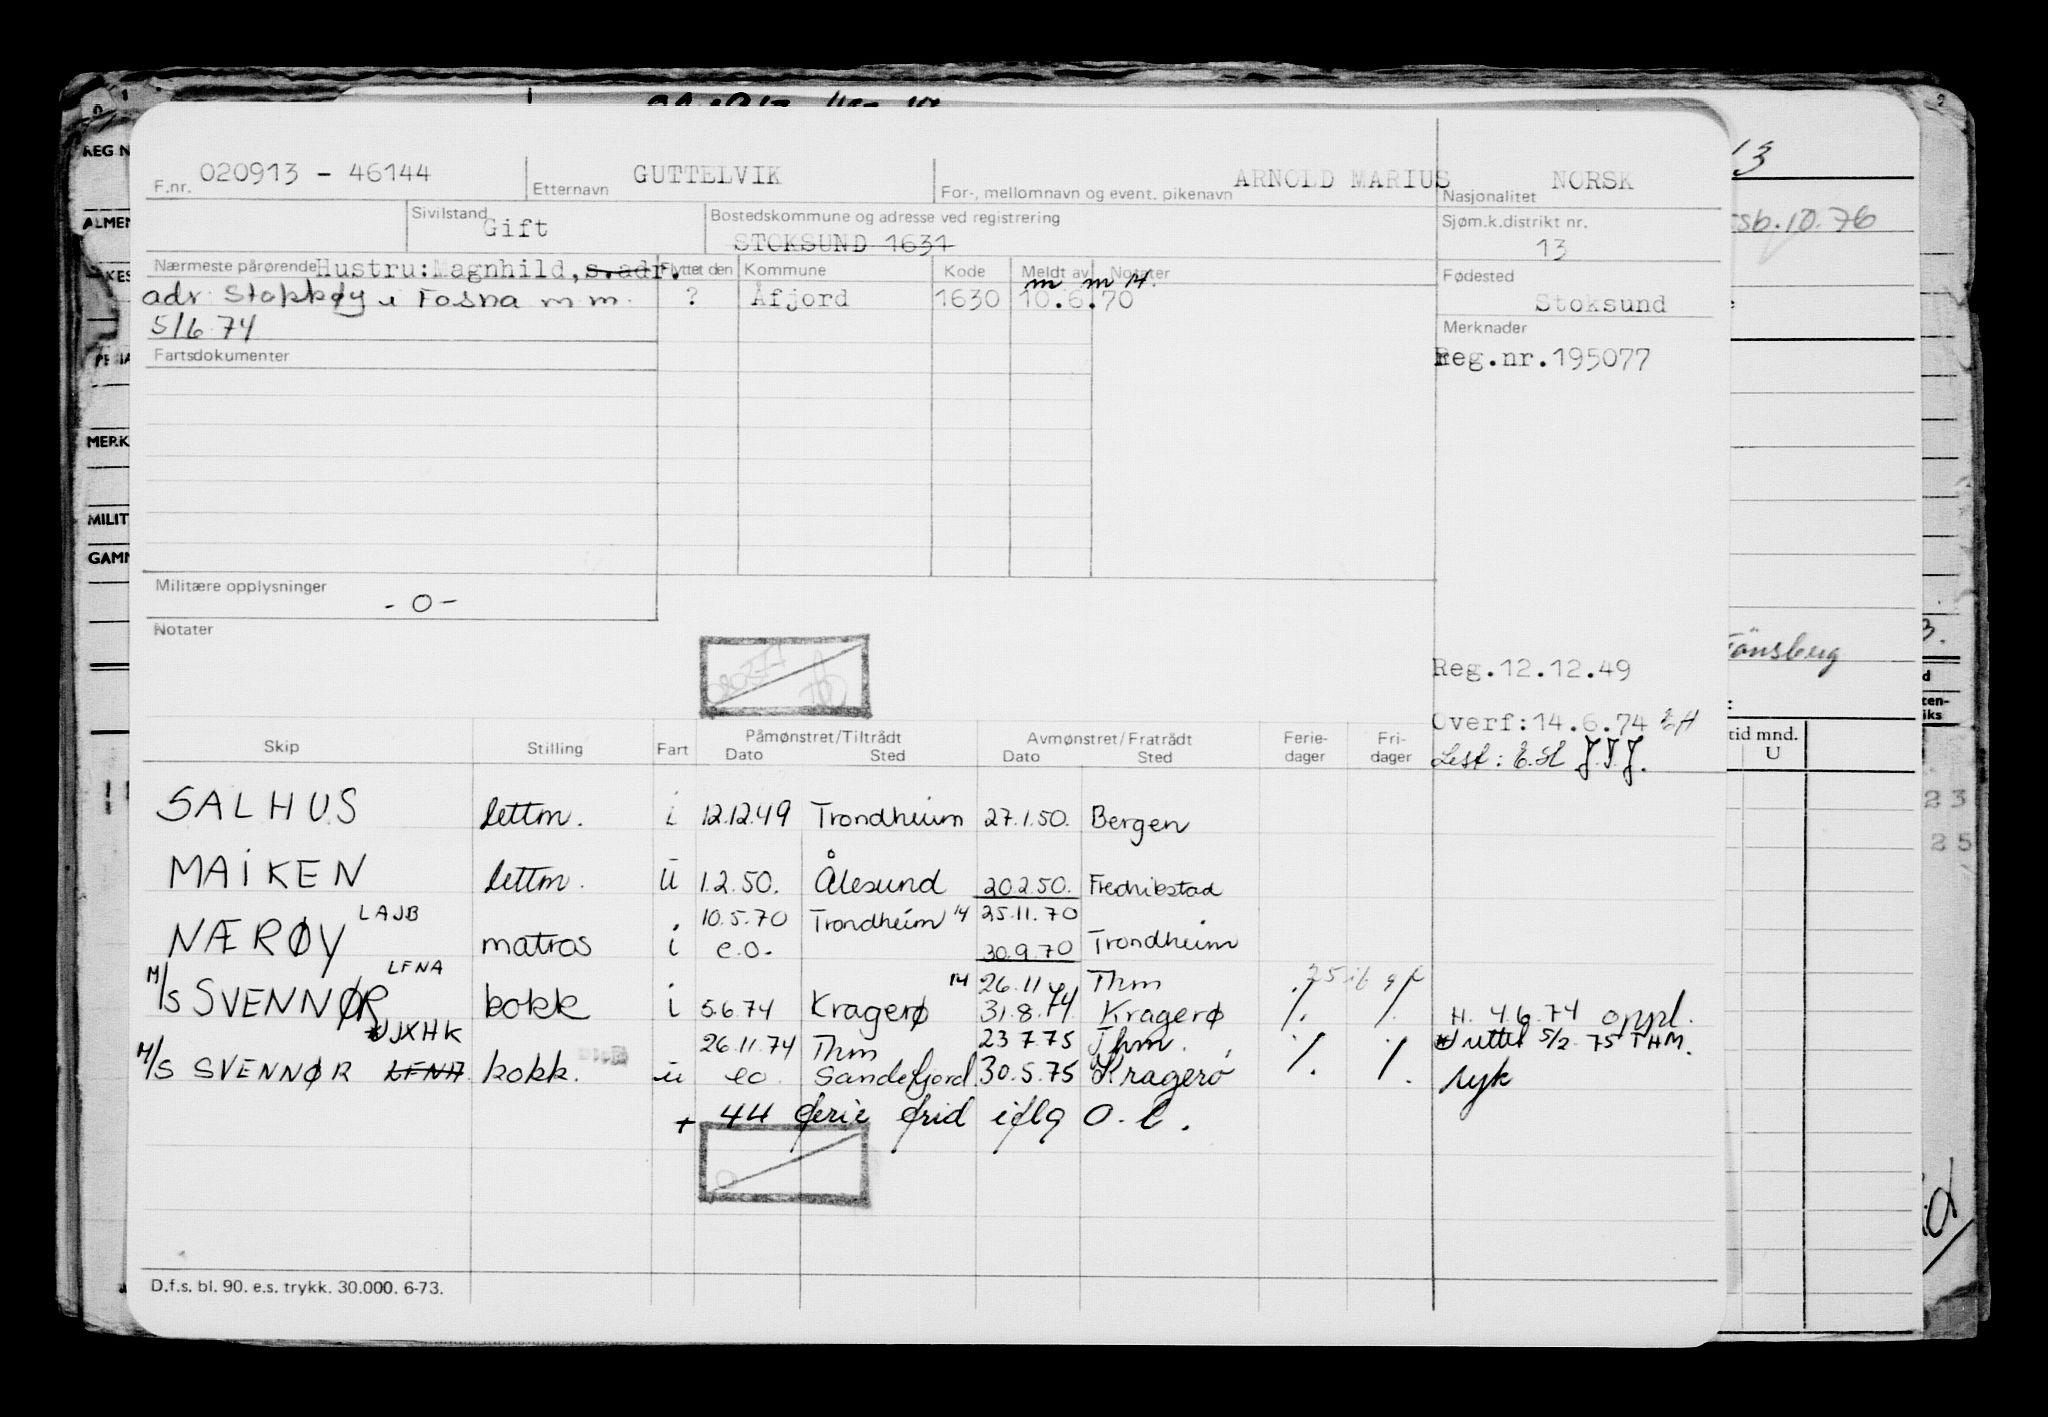 REG N
ALMEN
MERK
MILIT
GAMM
F.nr. 020913 - 46144 Etternavn GUTTELVIK For-, mellomnavn og event. pikenavn ARNOLD MARIUS Nasjonalitet NORSK
Sivilstand Gift Bostedskommune og adresse ved registrering STOKSUND 1631 Sjøm.k.distrikt nr. 13
Nærmeste pårørende Hustru:Magnhild, s.adr. Flyttet den Kommune Kode Meldt av Notater Fødested
m m 14.
adr. Stokkøy i Fosna m m. ? Åfjord 1630 10.6.70 Stoksund
5/6.74 Merknader
Fartsdokumenter Reg.nr.195077
Militære opplysninger - 0 -
Notater
Reg.12.12.49
Overf:14.6.74 EH
Lest: E.H J.T.J.
Skip Stilling Fart Påmønstret/Tiltrådt Dato Sted Avmønstret/Fratrådt Dato Sted Ferie-dager Fri-dager
SALHUS lettm. i 12.12.49 Trondheim 27.1.50. Bergen
MAIKEN lettm. u 1.2.50. Ålesund 20.2.50. Fredrikstad
LAJB 10.5.70 Trondheim 14 25.11.70
NÆRØY matros i e.o. 30.9.70 Trondheim
LFNA 14 26.11 Thm
M/S SVENNØR kokk i 5.6.74 Kragerø 31.8.74 Kragerø ./. ./. H. 4.6.74 oppl.
JXHK 26.11.74 Thm 23.7.75 Thm. uttel 5/2 75 THM.
M/S SVENNØR LFNA kokk. u eo. Sandefjord 30.5.75 Kragerø ./. ./. syk
+ 44 ferie frid iflg O.l.
D.f.s. bl. 90. e.s. trykk. 30.000. 6-73.
13
10.76
Tønsberg
tid mnd.
U
23
25